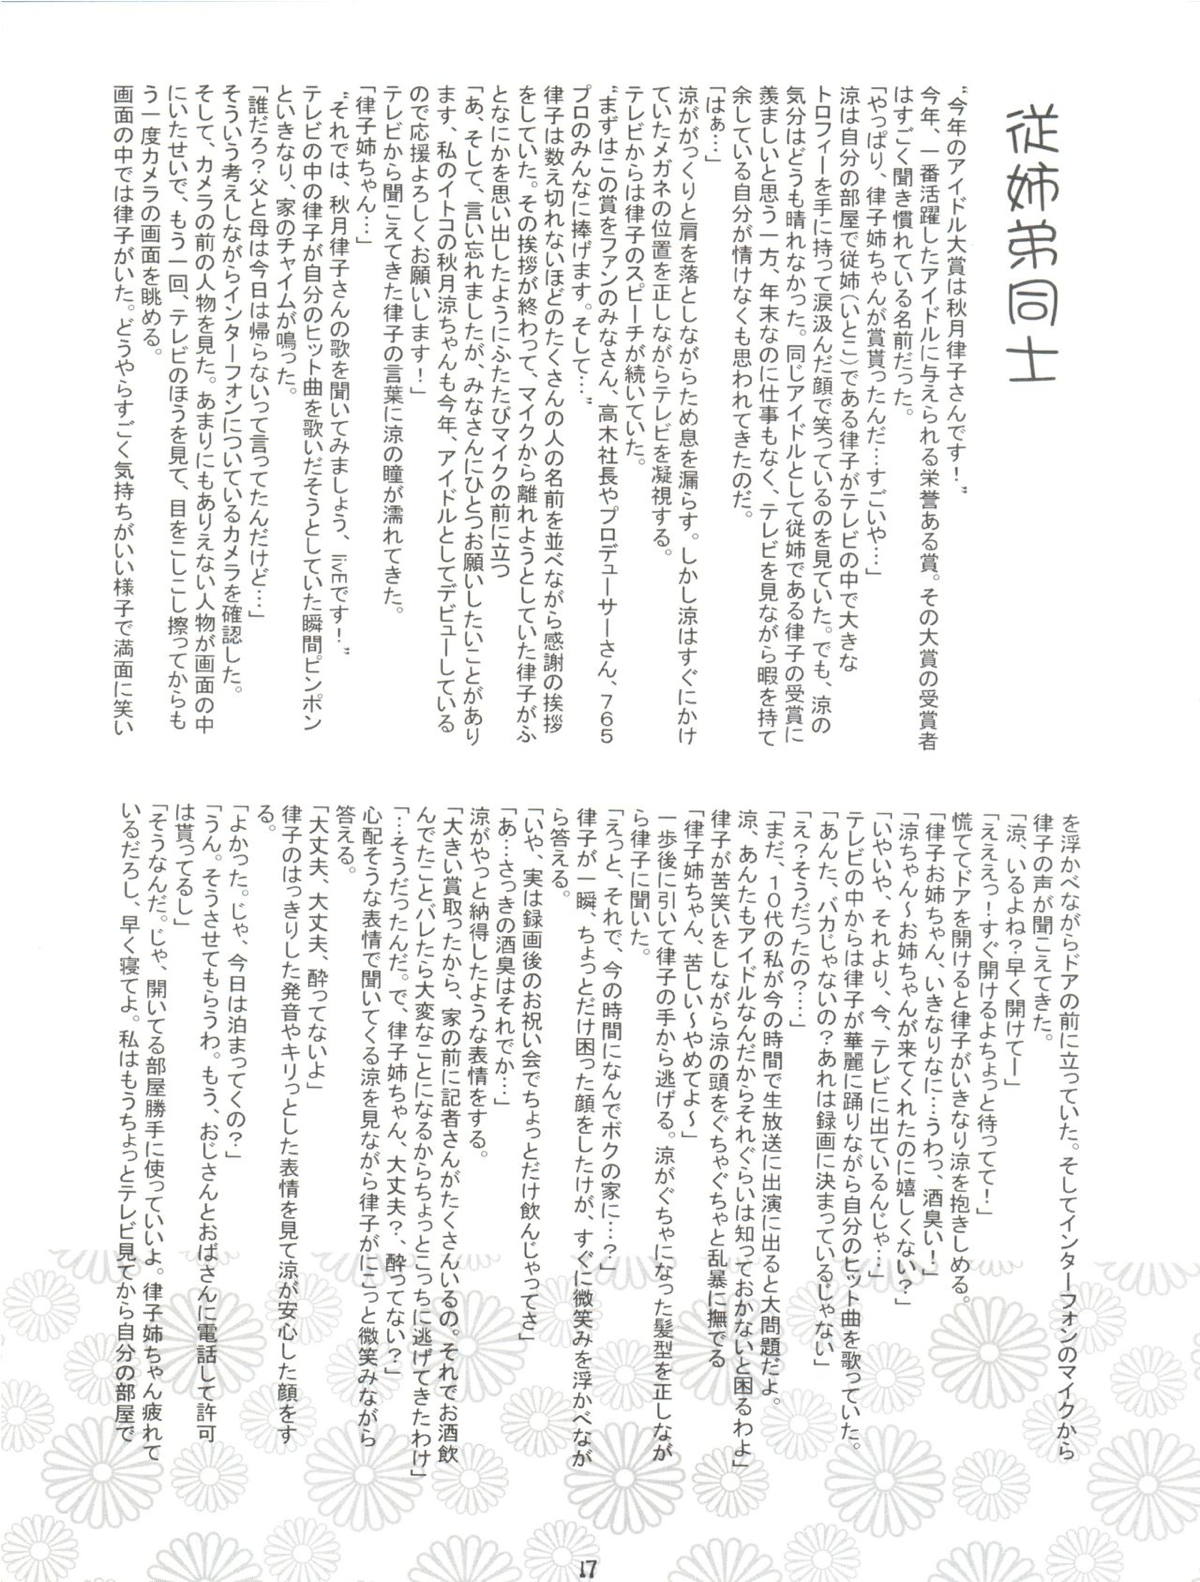 従姉弟同士
“今年のアイドル大賞は秋月律子さんです！”
今年、一番活躍したアイドルに与えられる栄誉ある賞。その大賞の受賞者
はすごく聞き慣れている名前だった。
「やっぱり、律子姉ちゃんが賞貰ったんだ…すごいや…」
涼は自分の部屋で従姉（いとこ）である律子がテレビの中で大きな
トロフィーを手に持って涙汲んだ顔で笑っているのを見ていた。でも、涼の
気分はどうも晴れなかった。同じアイドルとして従姉である律子の受賞に
羨ましいと思う一方、年末なのに仕事もなく、テレビを見ながら暇を持て
余している自分が情けなくも思われてきたのだ。
「はぁ…」
涼ががっくりと肩を落としながらため息を漏らす。しかし涼はすぐにかけ
ていたメガネの位置を正しながらテレビを凝視する。
テレビからは律子のスピーチが続いていた。
“まずはこの賞をファンのみなさん、高木社長やプロデューサーさん、７６５
プロのみんなに捧げます。そして…”
律子は数え切れないほどのたくさんの人の名前を並べながら感謝の挨拶
をしていた。その挨拶が終わって、マイクから離れようとしていた律子がふ
となにかを思い出したようにふたたびマイクの前に立つ
「あ、そして、言い忘れましたが、みなさんにひとつお願いしたいことがあり
ます、私のイトコの秋月涼ちゃんも今年、アイドルとしてデビューしている
ので応援よろしくお願いします！」
テレビから聞こえてきた律子の言葉に涼の瞳が濡れてきた。
「律子姉ちゃん…」
“それでは、秋月律子さんの歌を聞いてみましょう、livEです！”
テレビの中の律子が自分のヒット曲を歌いだそうとしていた瞬間ピンポン
といきなり、家のチャイムが鳴った。
「誰だろ？父と母は今日は帰らないって言ってたんだけど…」
そういう考えしながらインターフォンについているカメラを確認した。
そして、カメラの前の人物を見た。あまりにもありえない人物が画面の中
にいたせいで、もう一回、テレビのほうを見て、目をこしこし擦ってからも
う一度カメラの画面を眺める。
画面の中では律子がいた。どうやらすごく気持ちがいい様子で満面に笑い
を浮かべながらドアの前に立っていた。そしてインターフォンのマイクから
律子の声が聞こえてきた。
「涼、いるよね？早く開けてー」
「えええっ！すぐ開けるよちょっと待ってて！」
慌ててドアを開けると律子がいきなり涼を抱きしめる。
「律子お姉ちゃん、いきなりなに…うわっ、酒臭い！」
「涼ちゃん～お姉ちゃんが来てくれたのに嬉しくない？」
「いやいや、それより、今、テレビに出ているんじゃ…」
テレビの中からは律子が華麗に踊りながら自分のヒット曲を歌っていた。
「あんた、バカじゃないの？あれは録画に決まっているじゃない」
「え？そうだったの？…」
「まだ、１０代の私が今の時間で生放送に出演に出ると大問題だよ。
涼、あんたもアイドルなんだからそれぐらいは知っておかないと困るわよ」
律子が苦笑いをしながら涼の頭をぐちゃぐちゃと乱暴に撫でる
「律子姉ちゃん、苦しい～やめてよ～」
一歩後に引いて律子の手から逃げる。涼がぐちゃになった髪型を正しなが
ら律子に聞いた。
「えっと、それで、今の時間になんでボクの家に…？」
律子が一瞬、ちょっとだけ困った顔をしたけが、すぐに微笑みを浮かべなが
ら答える。
「いや、実は録画後のお祝い会でちょっとだけ飲んじゃってさ」
「あ…さっきの酒臭はそれでか…」
涼がやっと納得したような表情をする。
「大きい賞取ったから、家の前に記者さんがたくさんいるの。それでお酒飲
んでたことバレたら大変なことになるからちょっとこっちに逃げてきたわけ」
「…そうだったんだ。で、律子姉ちゃん、大丈夫？、酔ってない？」
心配そうな表情で聞いてくる涼を見ながら律子がにこっと微笑みながら
答える。
「大丈夫、大丈夫、酔ってないよ」
律子のはっきりした発音やキリっとした表情を見て涼が安心した顔をす
る。
「よかった。じゃ、今日は泊まってくの？」
「うん。そうさせてもらうわ。もう、おじさんとおばさんに電話して許可
は貰ってるし」
「そうなんだ。じゃ、開いてる部屋勝手に使っていいよ。律子姉ちゃん疲れて
いるだろし、早く寝てよ。私はもうちょっとテレビ見てから自分の部屋で
17